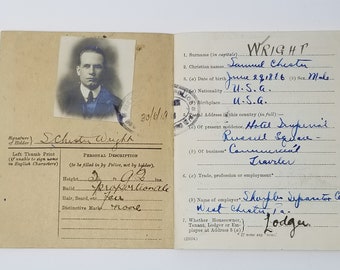 Signature of Holder
S. Chester Wright
Left Thumb Print
(if unable to sign name in English Characters)
PERSONAL DESCRIPTION
(to be filled in by Police, not by holder).
Height
Build proportionate
Hair, Beard, etc. Fair
Distinctive Marks none
1. Surname (in capitals) WRIGHT
2. Christian names Samuel Chester
3. (a) Date of birth June 29 (b) Sex Male
4. (a) Nationality U.S.A.
(b) Birthplace U.S.A.
5. (a) Address in this country (in full):
(a) Of present address Hotel Imperial
Russell Square
(b) Of business Commercial
Traveler
6. (a) Trade, profession or employment
(b) Name of employer Sharples Separator Co
West Chester Pa.
7. Whether Homeowner, Tenant, Lodger or Employee at Address 5 (a)
Lodger